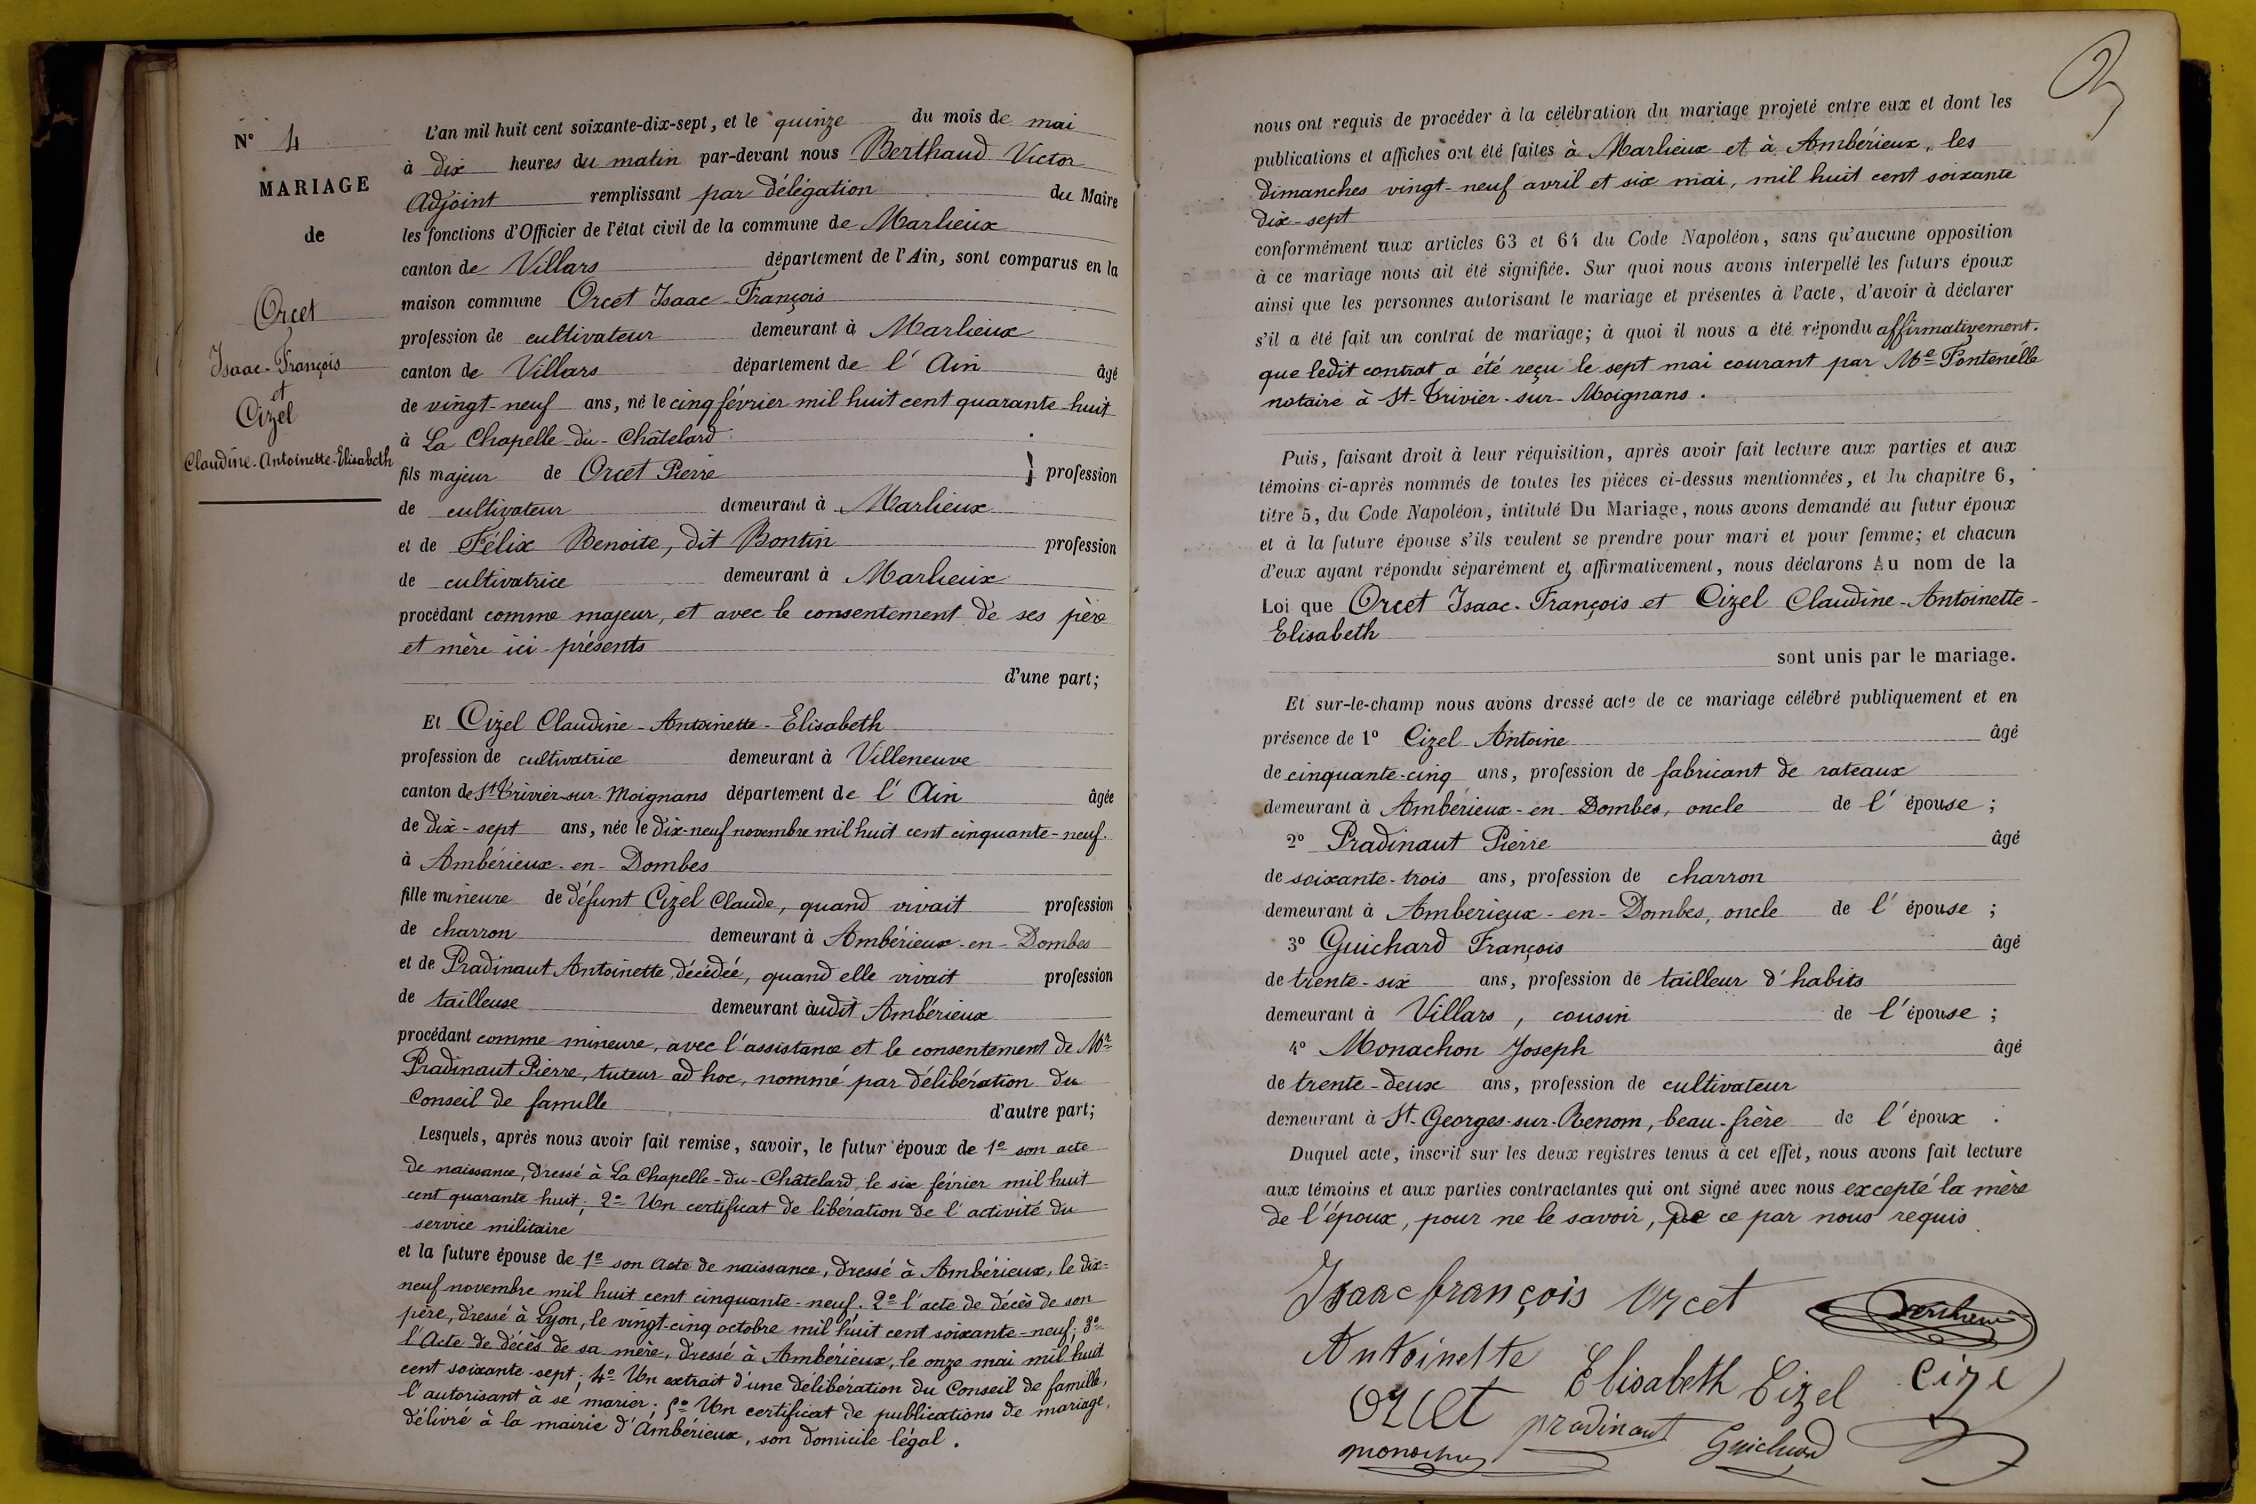 N° 4
MARIAGE
de
Orcet
Isaac-François
et
Cizel
Claudine-Antoinette-Elisabeth
L'an mil huit cent soixante-dix-sept, et le quinze du mois de mai
à dix heures du matin par-devant nous Berthaud Victor
Adjoint remplissant par délégation du Maire
les fonctions d'Officier de l'état civil de la commune de Marlieux
canton de Villars département de l'Ain, sont comparus en la
maison commune Orcet Isaac-François
profession de cultivateur demeurant à Marlieux
canton de Villars département de l'Ain âgé
de vingt-neuf ans, né le cinq février mil huit cent quarante-huit
à La Chapelle-du-Châtelard
fils majeur de Orcet Pierre } profession
de cultivateur demeurant à Marlieux
et de Félix Benoite, dit Bontin profession
de cultivatrice demeurant à Marlieux
procédant comme majeur, et avec le consentement de ses père
et mère ici présents
d'une part;
Et Cizel Claudine-Antoinette-Elisabeth
profession de cultivatrice demeurant à Villeneuve
canton de St Trivier-sur-Moignans département de l'Ain âgée
de dix-sept ans, née le dix-neuf novembre mil huit cent cinquante-neuf.
à Ambérieux-en-Dombes
fille mineure de défunt Cizel Claude, quand vivait profession
de charron demeurant à Ambérieux-en-Dombes
et de Pradinaut Antoinette, décédée, quand elle vivait profession
de tailleuse demeurant àudit Ambérieux
procédant comme mineure, avec l'assistance et le consentement de Mr
Pradinaut Pierre, tuteur ad hoc, nommé par délibération du
Conseil de famille d'autre part;
Lesquels, après nous avoir fait remise, savoir, le futur époux de 1° son acte
de naissance, dressé à La Chapelle-du-Châtelard, le six février mil huit
cent quarante huit; 2° Un certificat de libération de l'activité du
service militaire
et la future épouse de 1° son acte de naissance, dressé à Ambérieux, le dix-
neuf novembre mil huit cent cinquante-neuf. 2° l'acte de décès de son
père, dressé à Lyon, le vingt-cinq octobre mil huit cent soixante-neuf; 3°
l'Acte de décès de sa mère, dressé à Ambérieux, le onze mai mil huit
cent soixante-sept; 4° Un extrait d'une délibération du Conseil de famille,
l'autorisant à se marier; 5° Un certificat de publications de mariage,
délivré à la mairie d'Ambérieux, son domicile légal.
nous ont requis de procéder à la célébration du mariage projeté entre eux et dont les
publications et affiches ont été faites à Marlieux et à Ambérieux, les
dimanches vingt-neuf avril et six mai, mil huit cent soixante
dix-sept
conformément aux articles 63 et 64 du Code Napoléon, sans qu'aucune opposition
à ce mariage nous ait été signifiée. Sur quoi nous avons interpellé les futurs époux
ainsi que les personnes autorisant le mariage et présentes à l'acte, d'avoir à déclarer
s'il a été fait un contrat de mariage; à quoi il nous a été répondu affirmativement.
que ledit contrat a été reçu le sept mai courant par Me Fontenelle
notaire à St-Trivier-sur-Moignans.
Puis, faisant droit à leur réquisition, après avoir fait lecture aux parties et aux
témoins ci-après nommés de toutes les pièces ci-dessus mentionnées, et du chapitre 6,
titre 5, du Code Napoléon, intitulé Du Mariage, nous avons demandé au futur époux
et à la future épouse s'ils veulent se prendre pour mari et pour femme; et chacun
d'eux ayant répondu séparément et affirmativement, nous déclarons Au nom de la
Loi que Orcet Isaac-François et Cizel Claudine-Antoinette-
Elisabeth
sont unis par le mariage.
Et sur-le-champ nous avons dressé acte de ce mariage célébré publiquement et en
présence de 1° Cizel Antoine âgé
de cinquante-cinq ans, profession de fabricant de rateaux
demeurant à Ambérieux-en-Dombes, oncle de l'épouse;
2° Pradinaut Pierre âgé
de soixante-trois ans, profession de charron
demeurant à Amberieux-en-Dombes, oncle de l'épouse;
3° Guichard François âgé
de trente-six ans, profession de tailleur d'habits
demeurant à Villars, cousin de l'épouse;
4° Monachon Joseph âgé
de trente-deux ans, profession de cultivateur
demeurant à St-Georges-sur-Renom, beau-frère de l'époux.
Duquel acte, inscrit sur les deux registres tenus à cet effet, nous avons fait lecture
aux témoins et aux parties contractantes qui ont signé avec nous excepté la mère
de l'époux, pour ne le savoir, de ce par nous requis.
Isaac françois Orcet
Antoinette Elisabeth Cizel Cizel
Orcet pradinaut Guichard
monachon